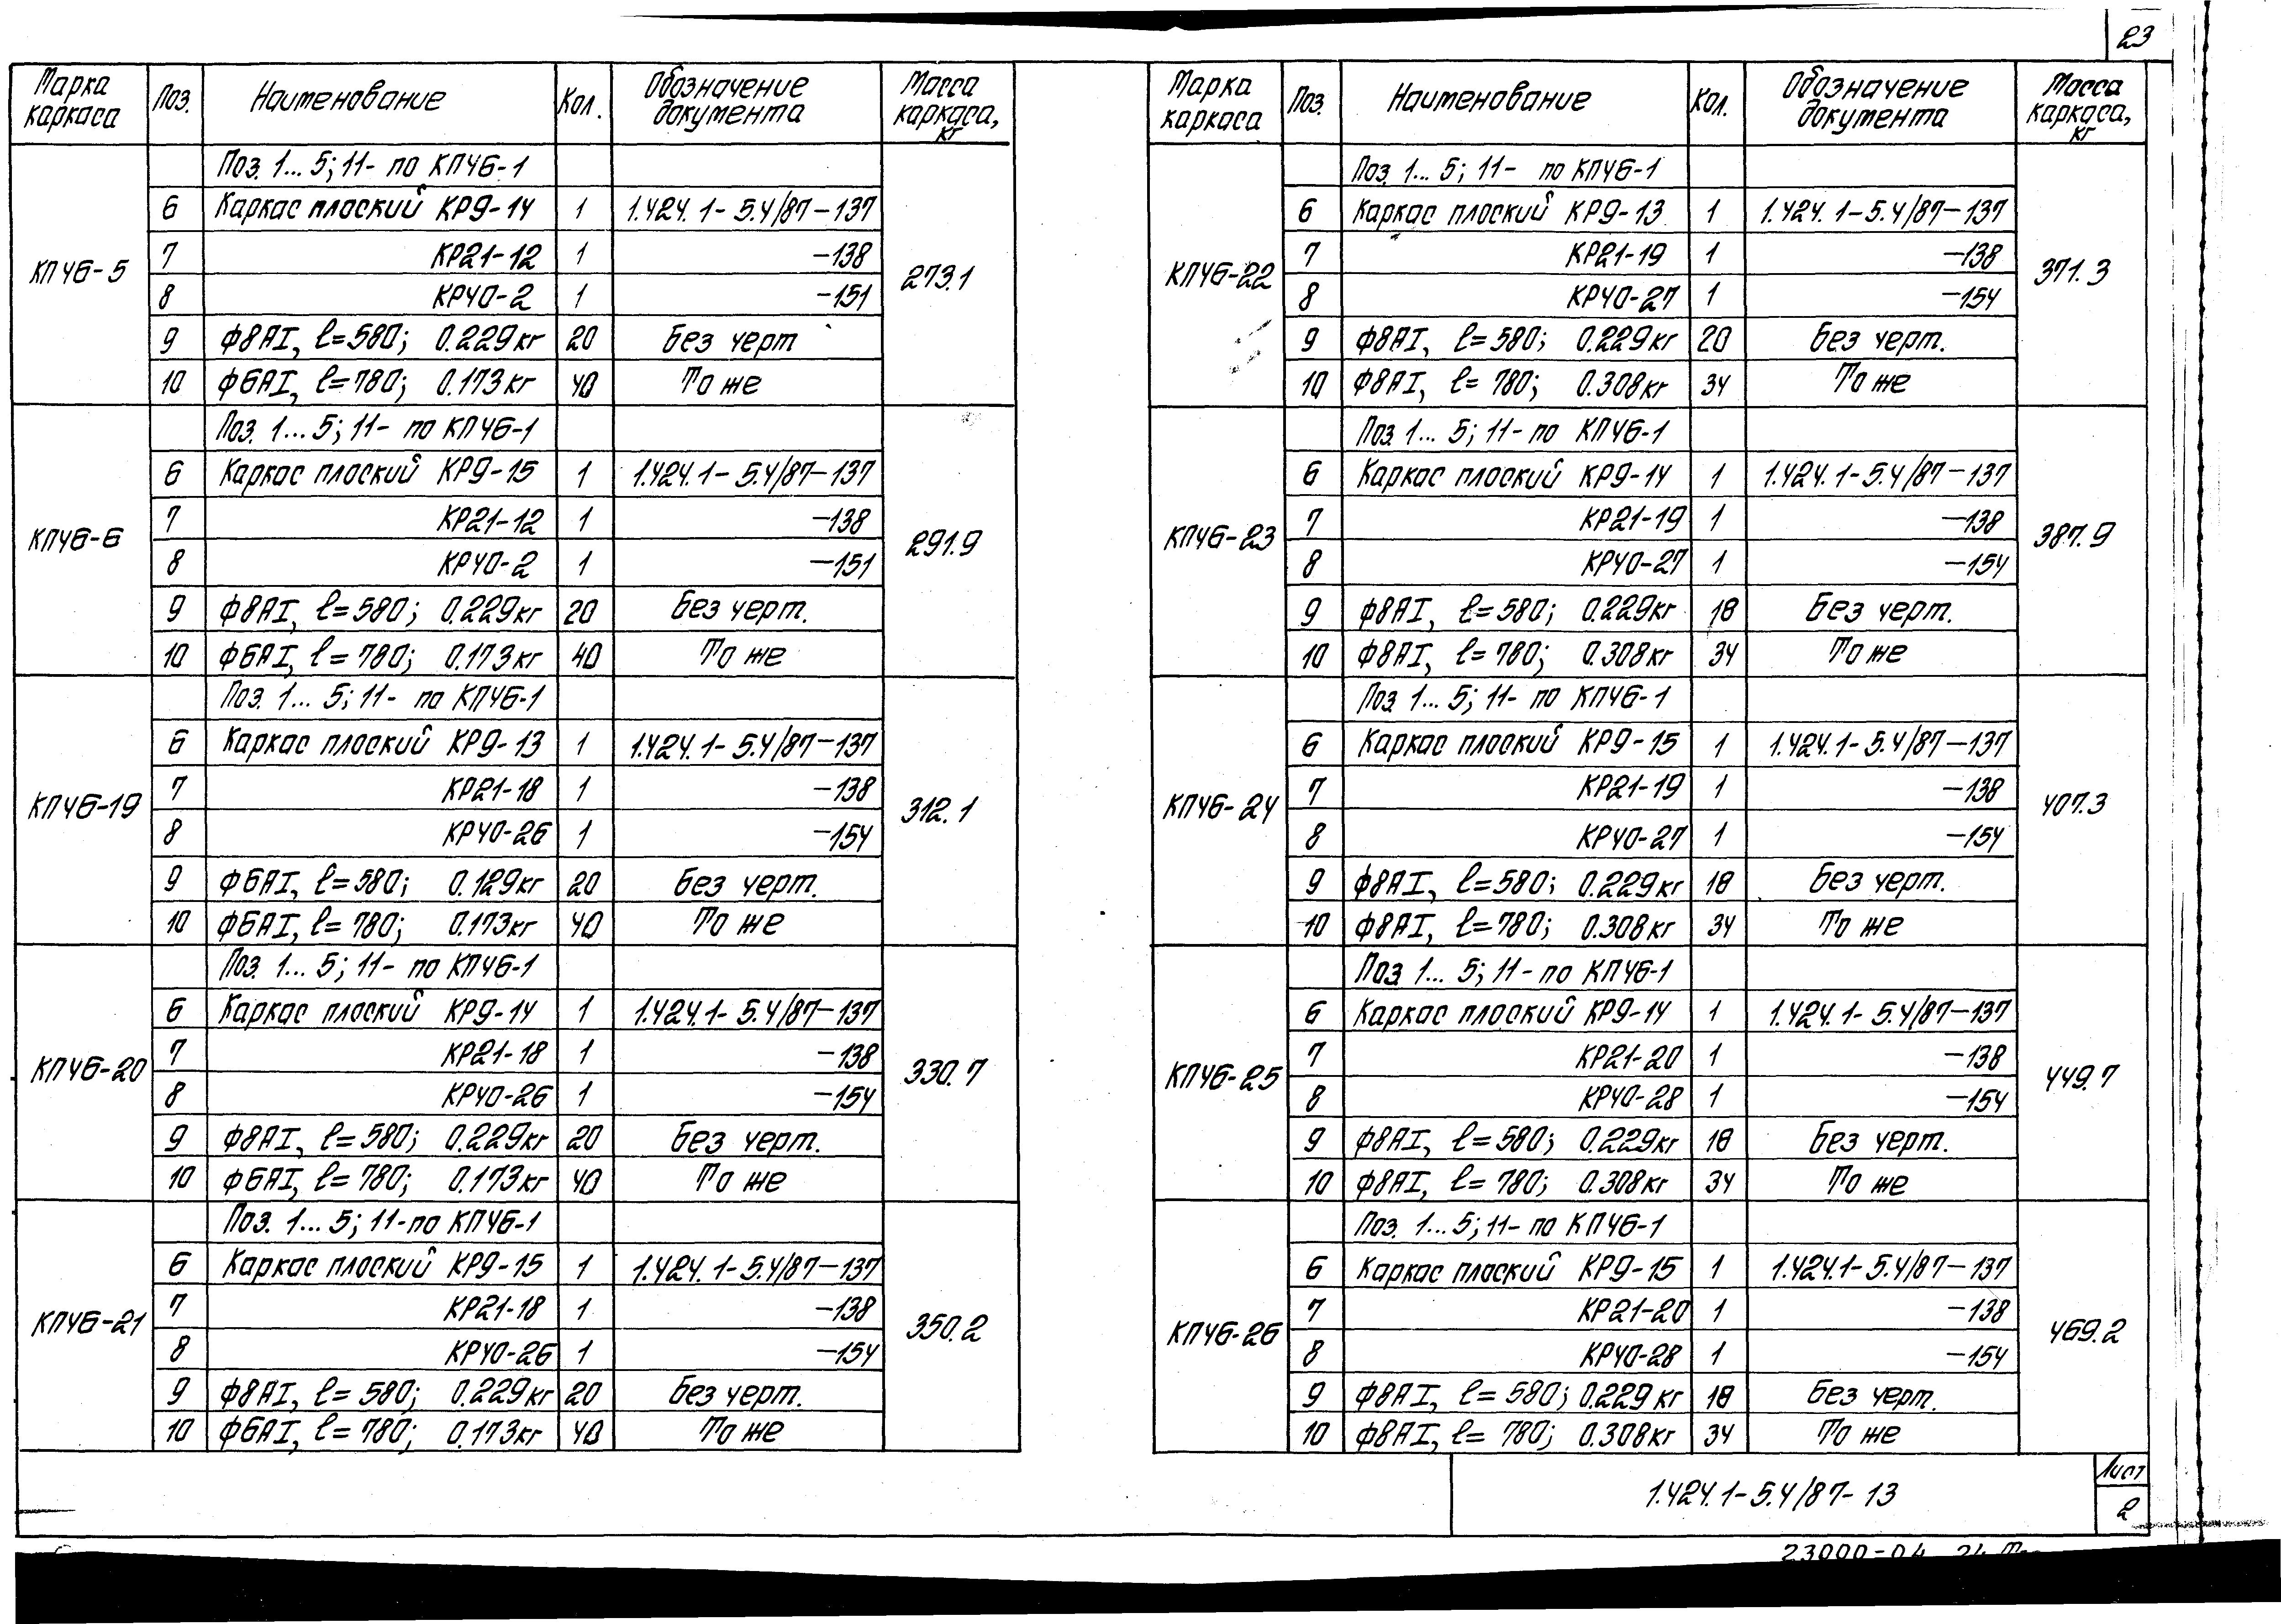 23
Марка каркаса Поз. Наименование Кол. Обозначение документа Масса каркаса, кг
КП46-5 273.1
Поз. 1... 5; 11- по КП46-1
6 Каркас плоский КР9-14 1 1.424.1-5.4/87-137
7 КР21-12 1 -138
8 КР40-2 1 -151
9 Ф8АI, ℓ=580; 0.229кг 20 Без черт
10 Ф6АI, ℓ=780; 0.173кг 40 То же
КП46-6 291.9
Поз. 1... 5; 11- по КП46-1
6 Каркас плоский КР9-15 1 1.424.1-5.4/87-137
7 КР21-12 1 -138
8 КР40-2 1 -151
9 Ф8АI, ℓ=580; 0.229кг 20 Без черт.
10 Ф6АI, ℓ=780; 0.173кг 40 То же
КП46-19 312.1
Поз. 1... 5; 11- по КП46-1
6 Каркас плоский КР9-13 1 1.424.1-5.4/87-137
7 КР21-18 1 -138
8 КР40-26 1 -154
9 Ф6АI, ℓ=580; 0.129кг 20 Без черт.
10 Ф6АI, ℓ=780; 0.173кг 40 То же
КП46-20 330.7
Поз. 1... 5; 11- по КП46-1
6 Каркас плоский КР9-14 1 1.424.1-5.4/87-137
7 КР21-18 1 -138
8 КР40-26 1 -154
9 Ф8АI, ℓ=580; 0.229кг 20 Без черт.
10 Ф6АI, ℓ=780; 0.173кг 40 То же
КП46-21 350.2
Поз. 1... 5; 11-по КП46-1
6 Каркас плоский КР9-15 1 1.424.1-5.4/87-137
7 КР21-18 1 -138
8 КР40-26 1 -154
9 Ф8АI, ℓ=580; 0.229кг 20 Без черт.
10 Ф6АI, ℓ=780; 0.173кг 40 То же
Марка каркаса Поз. Наименование Кол. Обозначение документа Масса каркаса, кг
КП46-22 371.3
Поз. 1... 5; 11- по КП46-1
6 Каркас плоский КР9-13 1 1.424.1-5.4/87-137
7 КР21-19 1 -138
8 КР40-27 1 -154
9 Ф8АI, ℓ=580; 0.229кг 20 Без черт.
10 Ф8АI, ℓ=780; 0.308кг 34 То же
КП46-23 387.9
Поз. 1... 5; 11- по КП46-1
6 Каркас плоский КР9-14 1 1.424.1-5.4/87-137
7 КР21-19 1 -138
8 КР40-27 1 -154
9 Ф8АI, ℓ=580; 0.229кг 18 Без черт.
10 Ф8АI, ℓ=780; 0.308кг 34 То же
КП46-24 407.3
Поз. 1... 5; 11- по КП46-1
6 Каркас плоский КР9-15 1 1.424.1-5.4/87-137
7 КР21-19 1 -138
8 КР40-27 1 -154
9 Ф8АI, ℓ=580; 0.229кг 18 Без черт.
10 Ф8АI, ℓ=780; 0.308кг 34 То же
КП46-25 449.7
Поз. 1... 5; 11- по КП46-1
6 Каркас плоский КР9-14 1 1.424.1-5.4/87-137
7 КР21-20 1 -138
8 КР40-28 1 -154
9 Ф8АI, ℓ=580; 0.229кг 18 Без черт.
10 Ф8АI, ℓ=780; 0.308кг 34 То же
КП46-26 469.2
Поз. 1... 5; 11- по КП46-1
6 Каркас плоский КР9-15 1 1.424.1-5.4/87-137
7 КР21-20 1 -138
8 КР40-28 1 -154
9 Ф8АI, ℓ=580; 0.229кг 18 Без черт.
10 Ф8АI, ℓ=780; 0.308кг 34 То же
1.424.1-5.4/87-13
Лист
2
23000-04 24